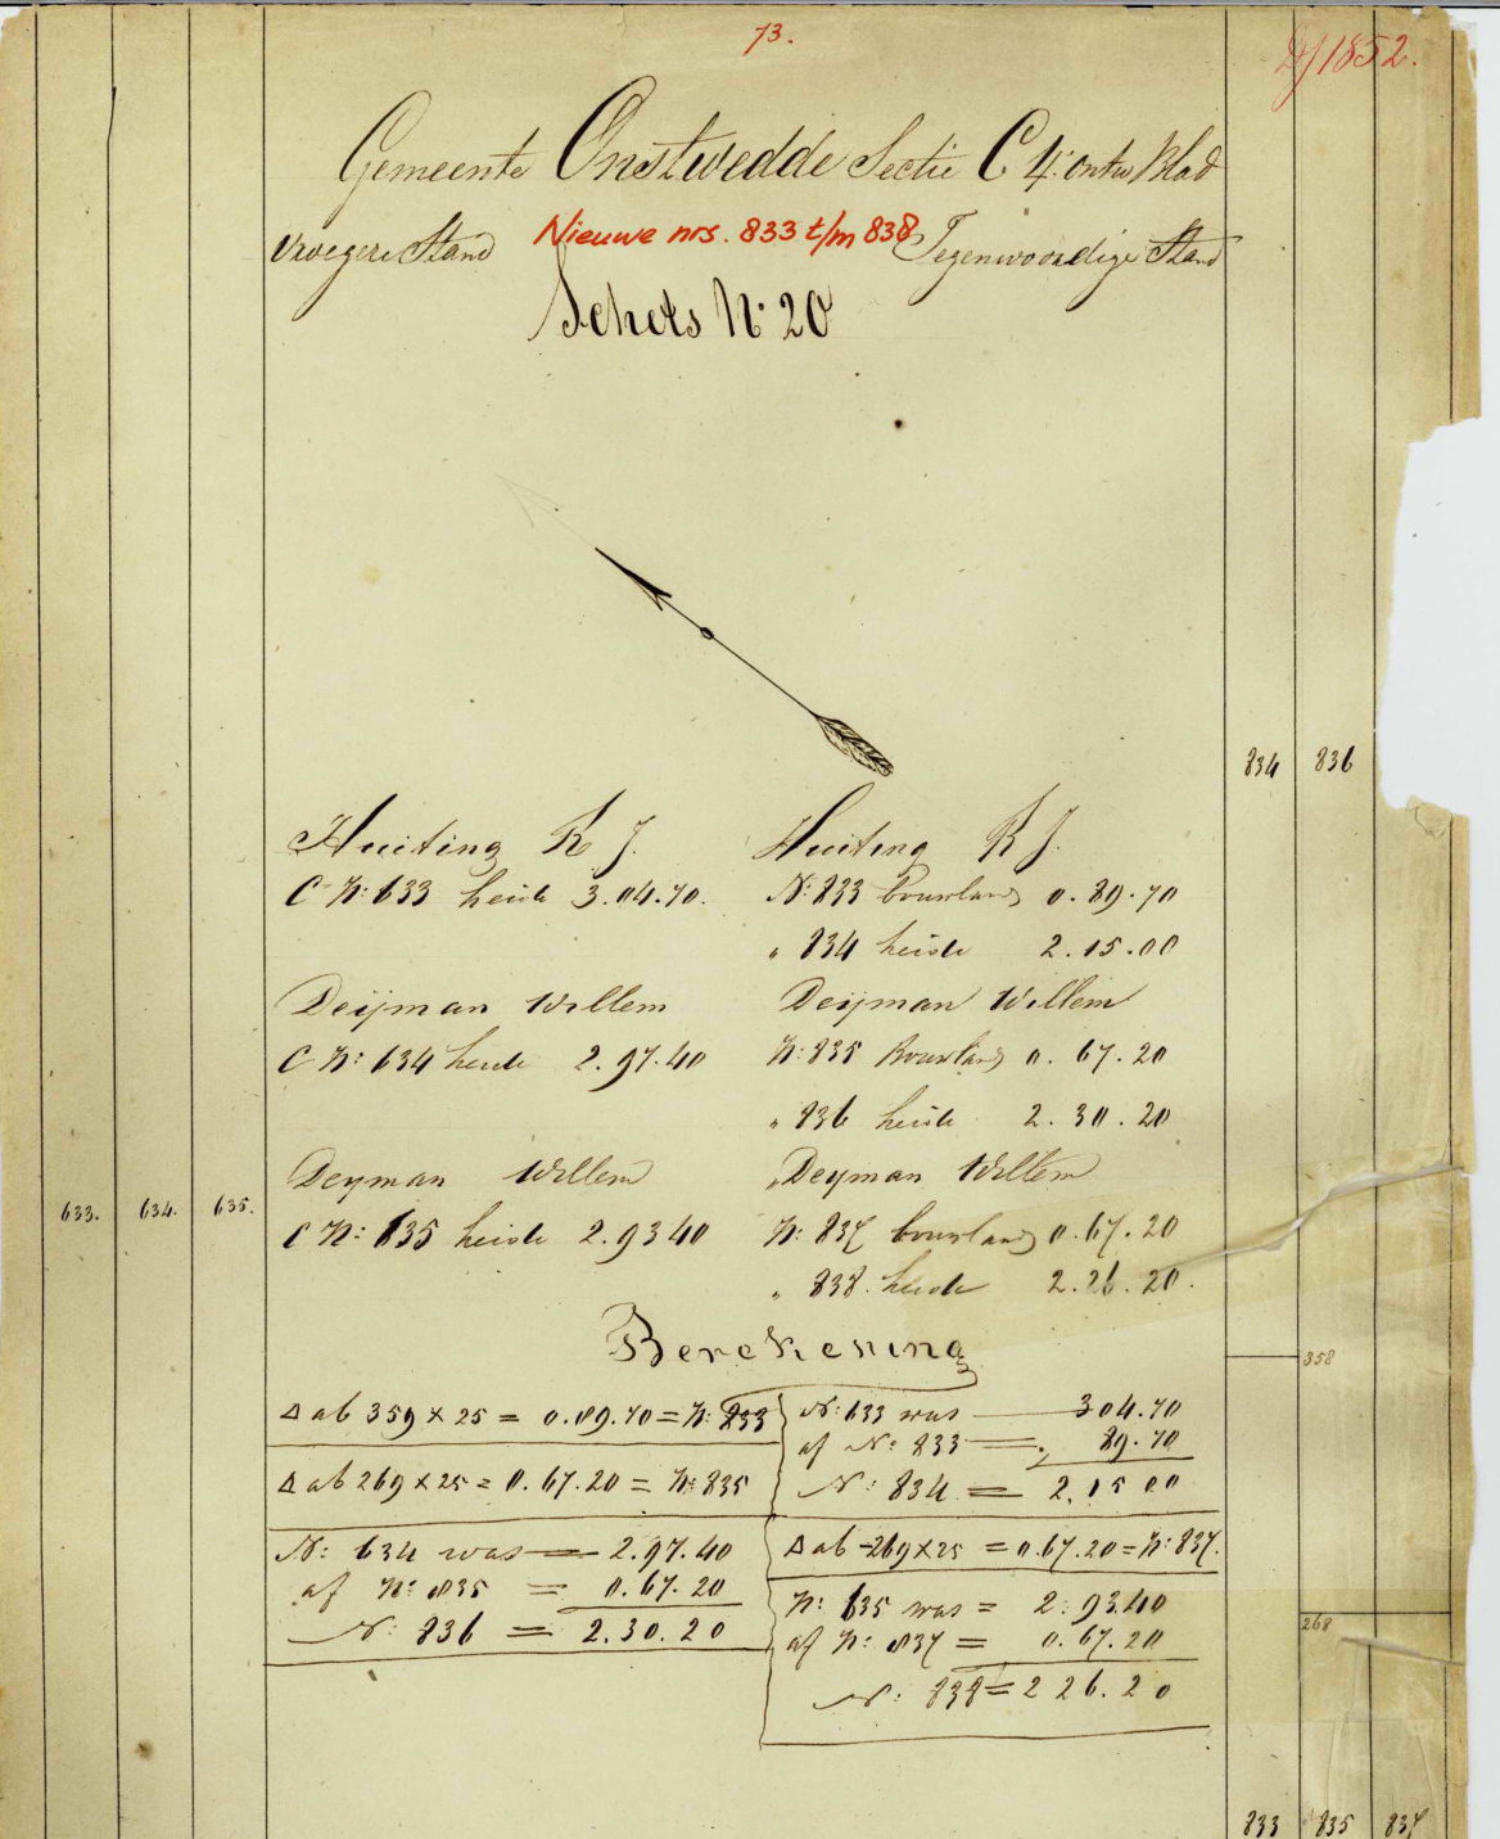 73.
Dj 1852.
Gemeente Onstwedde Sectie C 4e ontw Blad
Vroegere Stand Nieuwe nrs. 833 t/m 838 Tegenwoordige Stand
Schets N° 20
834 836
Huiting R J. Huiting R J.
C N: 633 heide 3.04.70. N: 833 bouwland 0.89.70
" 834 heide 2.15.00
Deijman Willem Deijman Willem
C N: 634 heide 2.97.40 N: 835 Bouwland 0.67.20
" 836 heide 2.30.20
Deyman Willem Deyman Willem
633. 634. 635.
C N: 635 heide 2.9340 N: 837 bouwland 0.67.20
" 838. heide 2.26.20.
Berekening
358
Δ ab 359 x 25 = 0.89.70 = N: 833
Δ ab 269 x 25 = 0.67.20 = N: 835
N: 633 was 304.70
af N: 833 = 89.70
N: 834 = 2.15 00
N: 634 was = 2.97.40
af N: 835 = 0.67.20
N: 836 = 2.30.20
Δ ab 269 x 25 = 0.67.20 = N: 837.
N: 635 was = 2.93.40
af N: 837 = 0.67.20
N: 838 = 2 26.20
268
833 835 837